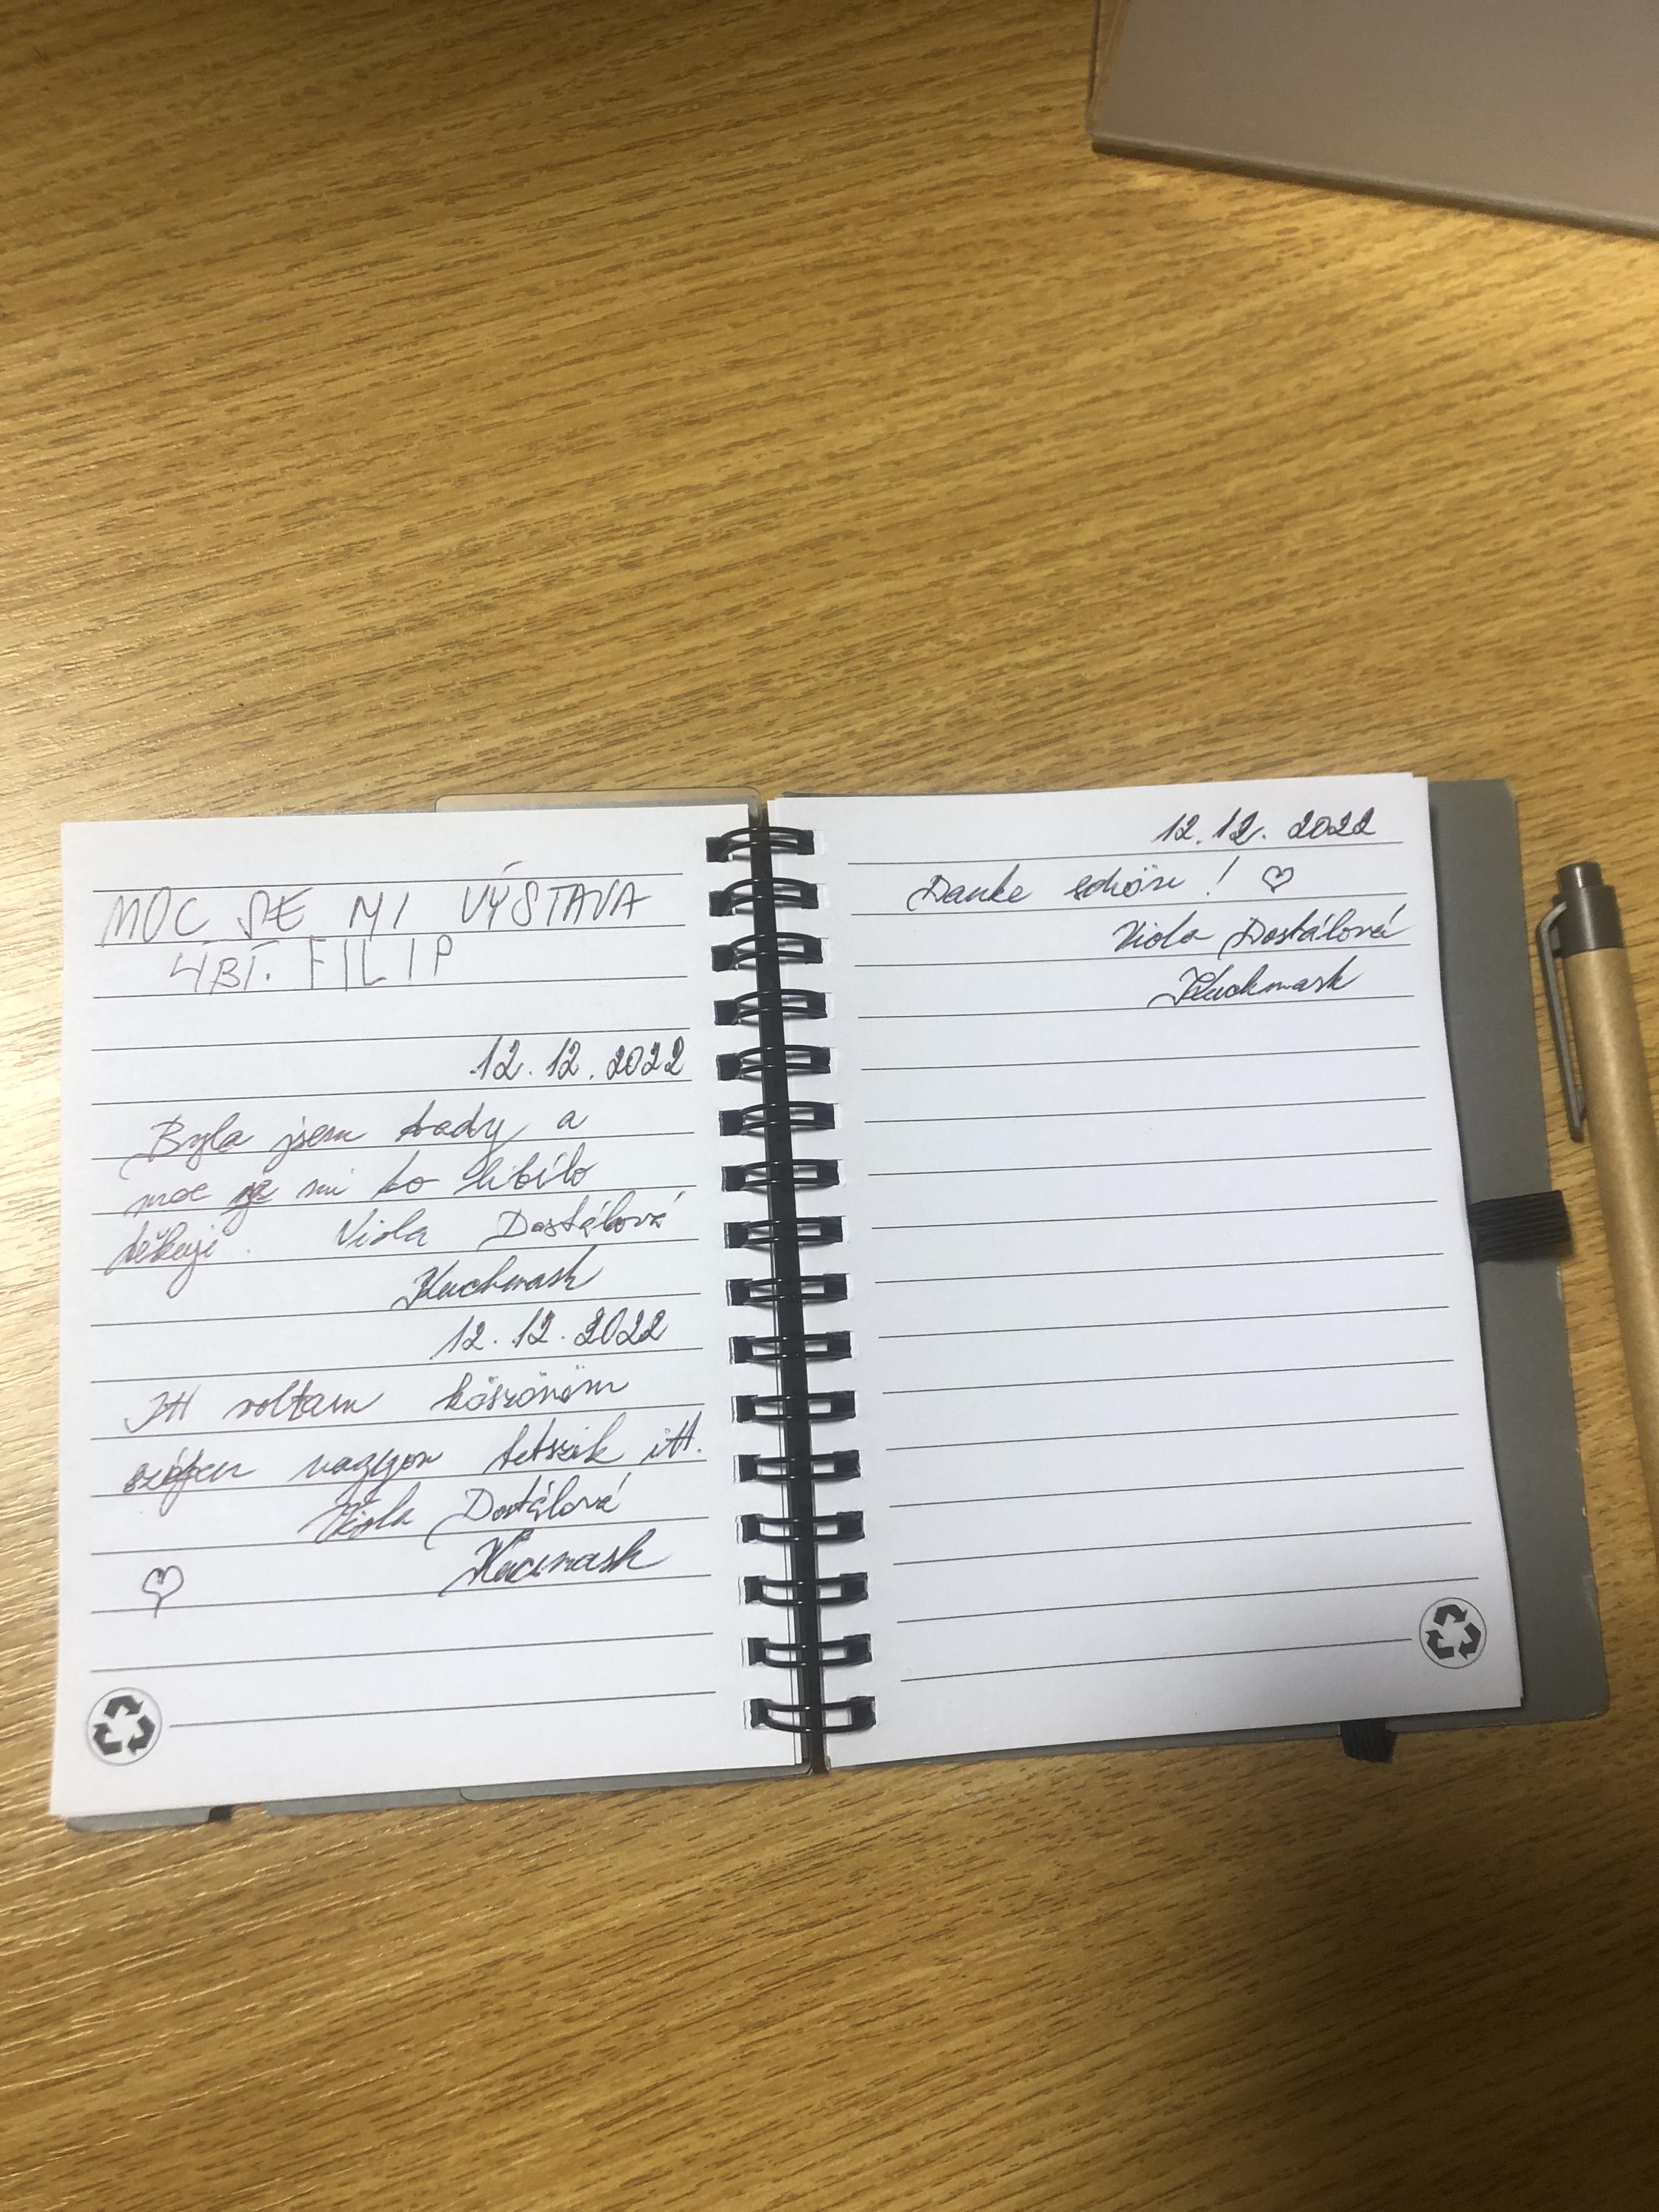 MOC SE MI VÝSTAVA
LÍBÍ. FILIP
12.12.2022
Byla jsem tady a
moc se mi to líbilo
děkuji. Viola Dostálová
12.12.2022
Itt voltam köszönöm
szépen nagyon tetszik itt.
Viola Dostálová
12.12.2022
Danke schön! ♡
Viola Dostálová